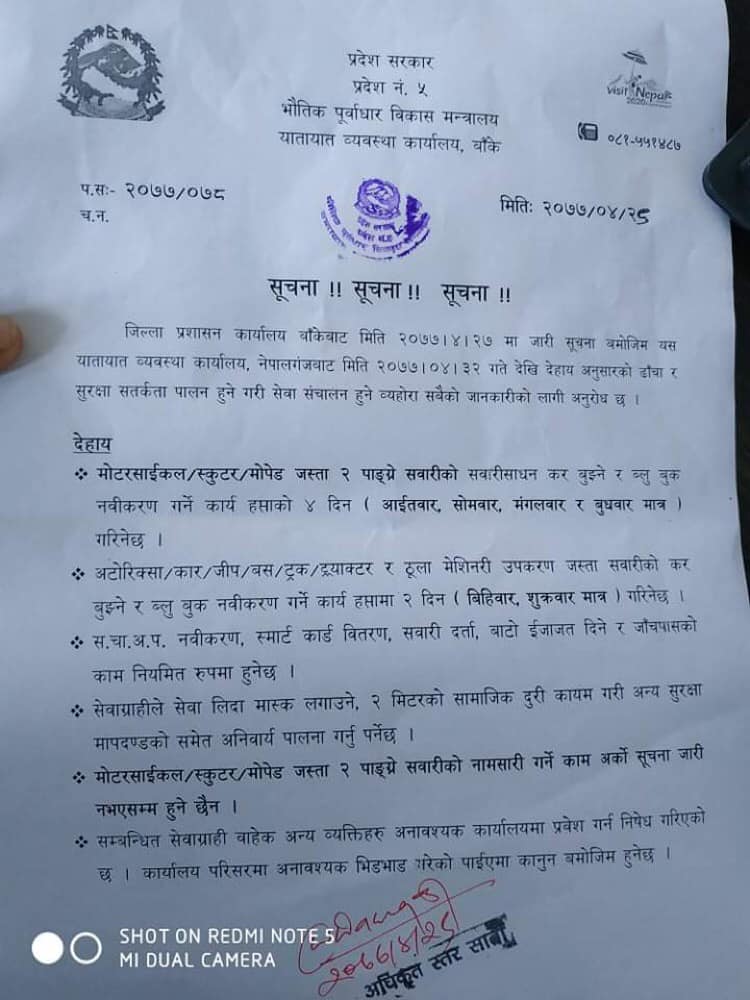 प्रदेश सरकार
प्रदेश नं. ५
भौतिक पूर्वाधार विकास मन्त्रालय
यातायात व्यवस्था कार्यालय, बाँके
visit Nepal
2020
०८१-५५१४८७
प.सः- २०७७/०७८
च.न.
मितिः २०७७/०४/२९
सूचना !! सूचना !! सूचना !!
जिल्ला प्रशासन कार्यालय बाँकेबाट मिति २०७७।४।२७ मा जारी सूचना बमोजिम यस
यातायात व्यवस्था कार्यालय, नेपालगंजबाट मिति २०७७।०४।३२ गते देखि देहाय अनुसारको ढाँचा र
सुरक्षा सतर्कता पालन हुने गरी सेवा संचालन हुने व्यहोरा सबैको जानकारीको लागी अनुरोध छ ।
देहाय
❖ मोटरसाईकल/स्कुटर/मोपेड जस्ता २ पाङ्ग्रे सवारीको सवारीसाधन कर बुझ्ने र ब्लु बुक
नवीकरण गर्ने कार्य हप्ताको ४ दिन ( आईतवार, सोमवार, मंगलवार र बुधवार मात्र )
गरिनेछ ।
❖ अटोरिक्सा/कार/जीप/बस/ट्रक/ट्र्याक्टर र ठूला मेशिनरी उपकरण जस्ता सवारीको कर
बुझ्ने र ब्लु बुक नवीकरण गर्ने कार्य हप्तामा २ दिन ( बिहिवार, शुक्रवार मात्र ) गरिनेछ ।
❖ स.चा.अ.प. नवीकरण, स्मार्ट कार्ड वितरण, सवारी दर्ता, बाटो ईजाजत दिने र जाँचपासको
काम नियमित रुपमा हुनेछ ।
❖ सेवाग्राहीले सेवा लिदा मास्क लगाउने, २ मिटरको सामाजिक दुरी कायम गरी अन्य सुरक्षा
मापदण्डको समेत अनिवार्य पालना गर्नु पर्नेछ ।
❖ मोटरसाईकल/स्कुटर/मोपेड जस्ता २ पाङ्ग्रे सवारीको नामसारी गर्ने काम अर्को सूचना जारी
नभएसम्म हुने छैन ।
❖ सम्बन्धित सेवाग्राही वाहेक अन्य व्यक्तिहरु अनावश्यक कार्यालयमा प्रवेश गर्न निषेध गरिएको
छ । कार्यालय परिसरमा अनावश्यक भिडभाड गरेको पाईएमा कानुन बमोजिम हुनेछ ।
२०७७/४/२९
अधिकृत स्तर सातौं
SHOT ON REDMI NOTE 5
MI DUAL CAMERA